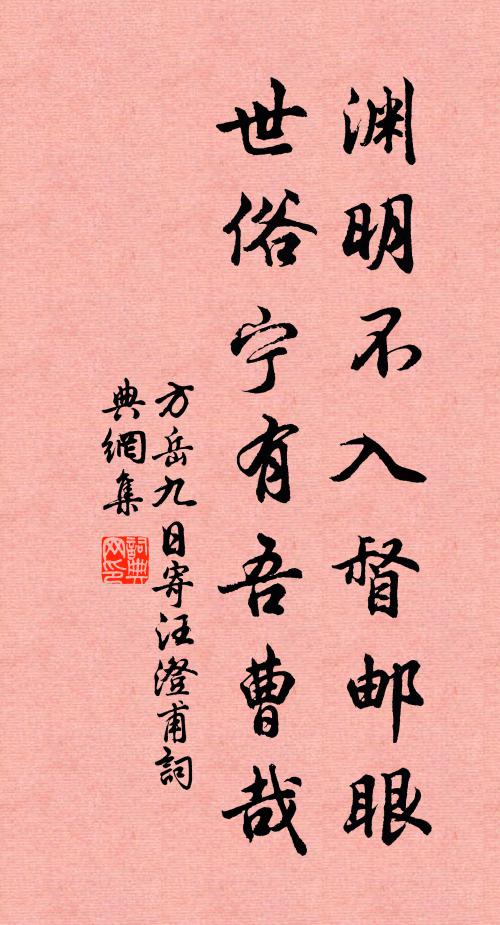 渊明不入督邮眼
世俗宁有吾曹哉
方岳九日寄汪澄甫詞
典網集
詞典网印